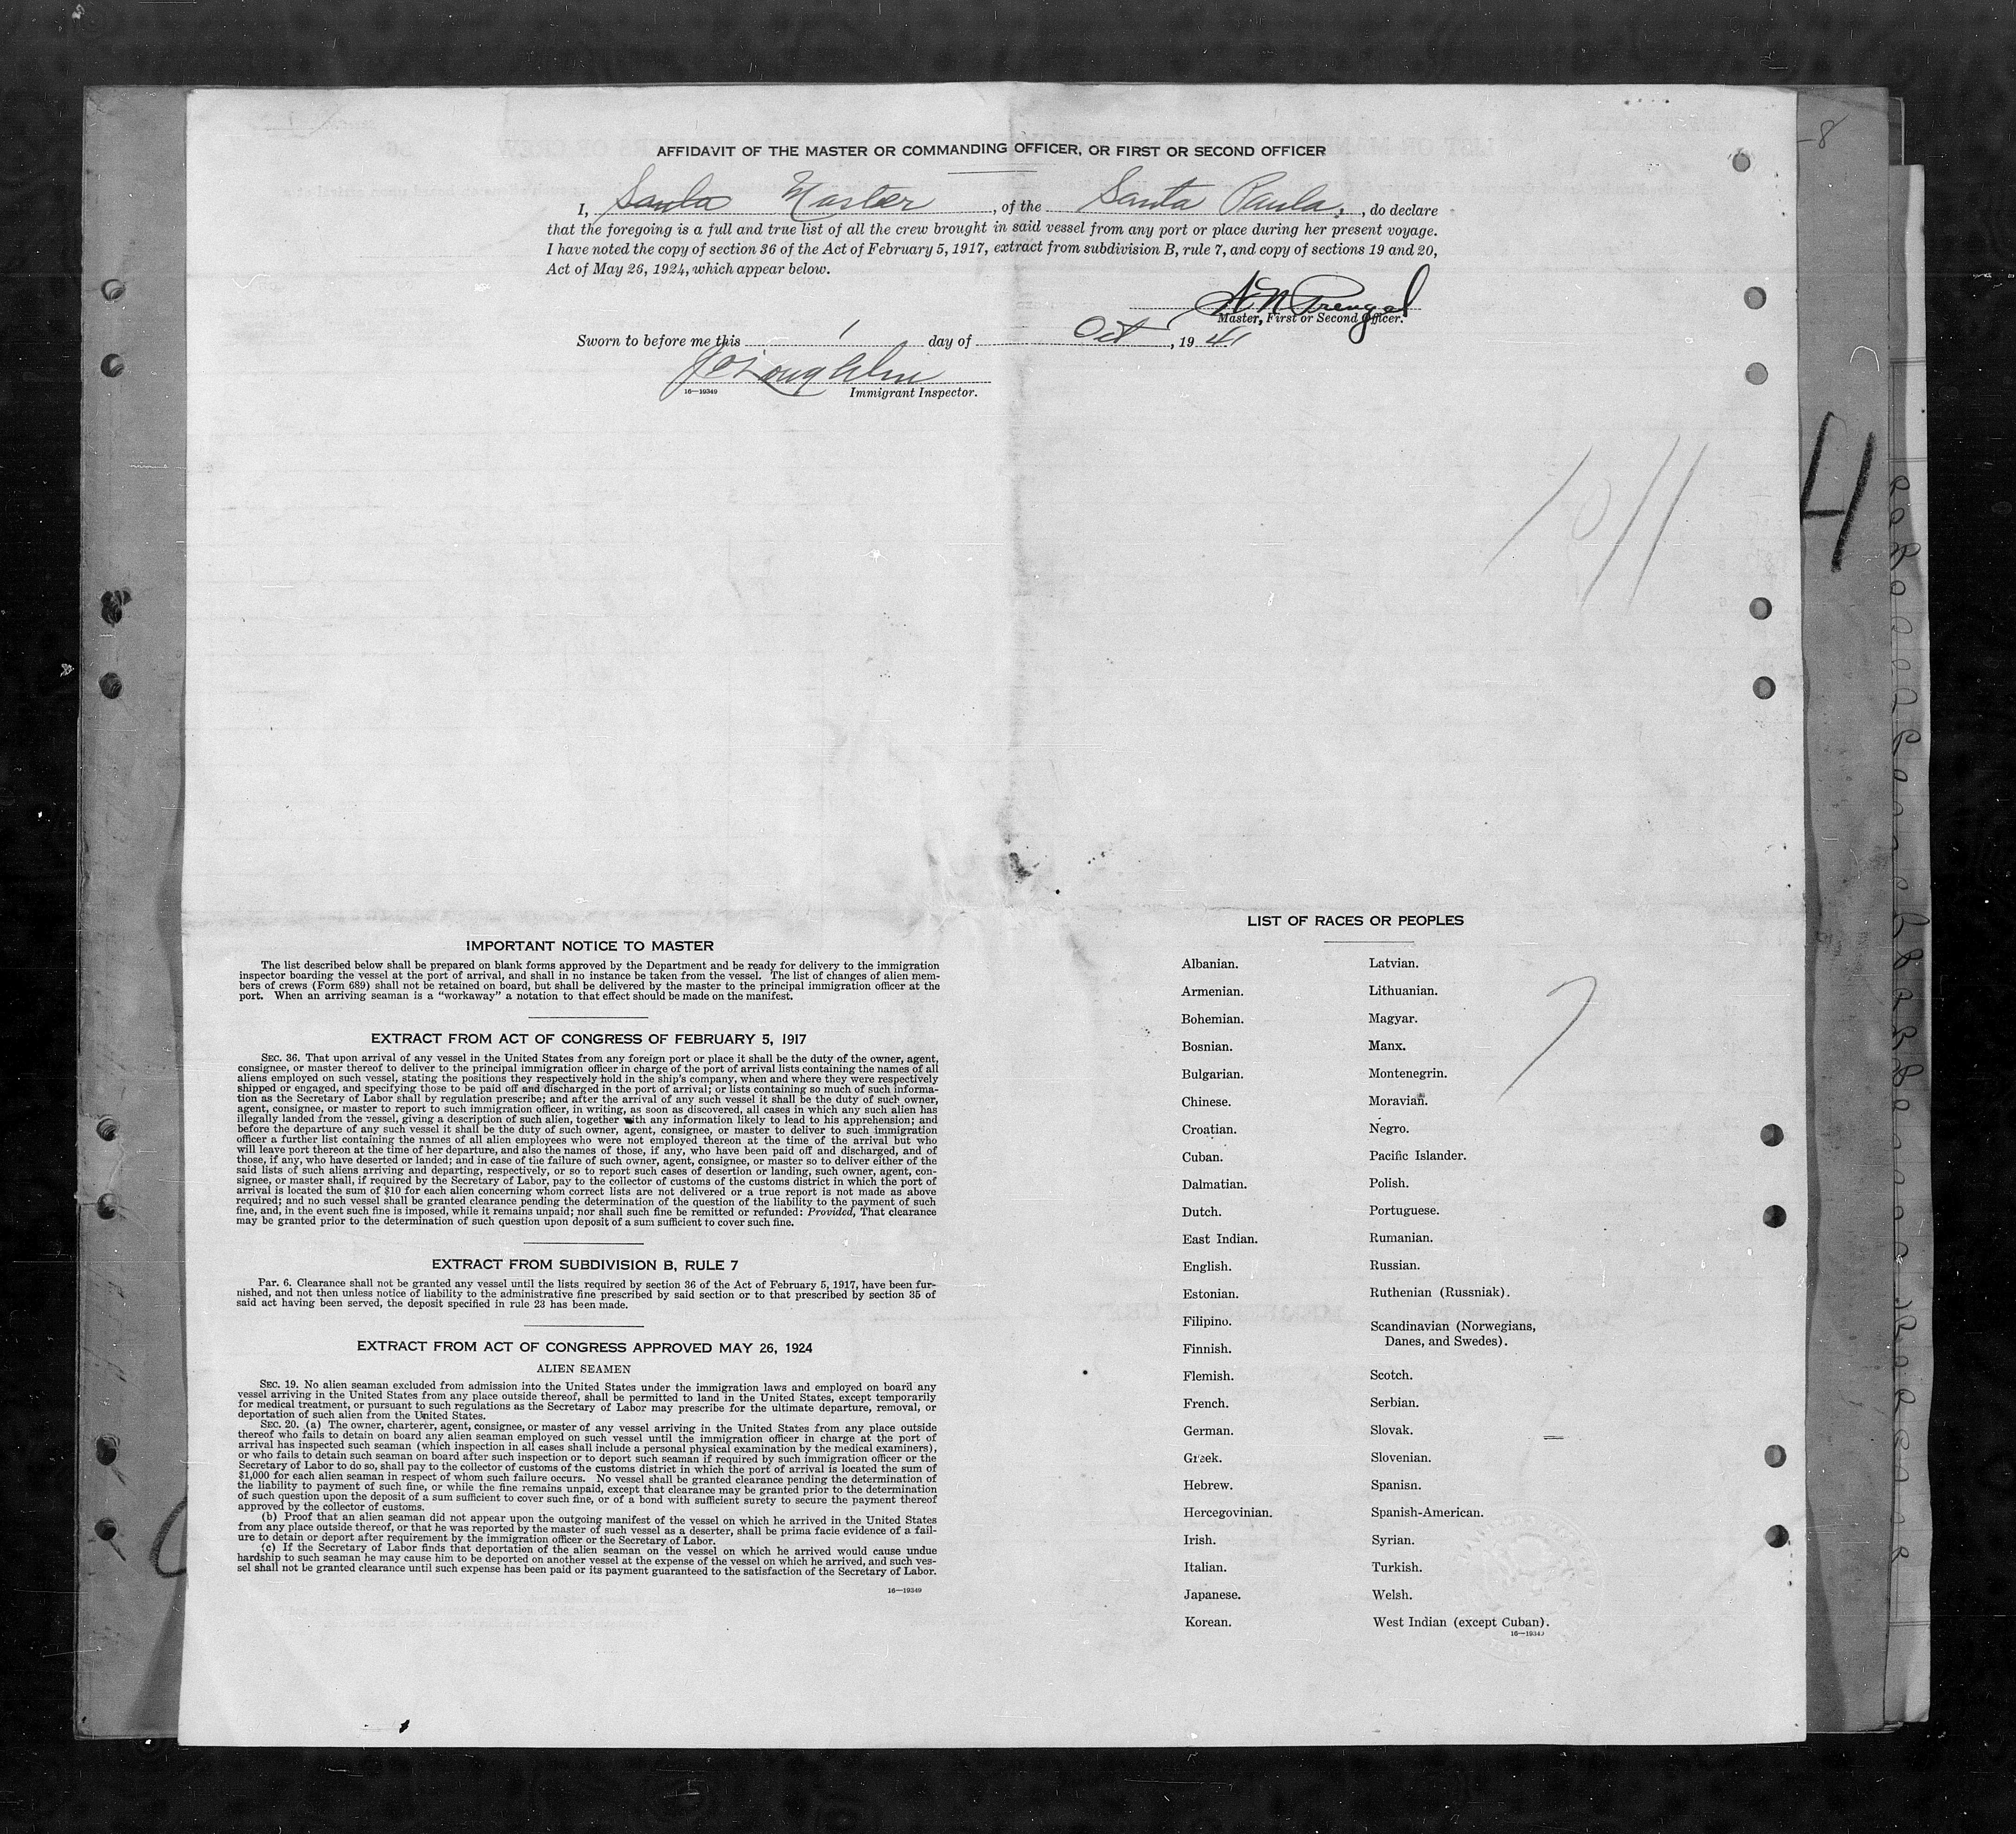 AFFIDAVIT OF THE MASTER OR COMMANDING OFFICER, OR FIRST OR SECOND OFFICER
I, Santa Master, of the Santa Paula, do declare
that the foregoing is a full and true list of all the crew brought in said vessel from any port or place during her present voyage.
I have noted the copy of section 36 of the Act of February 5, 1917, extract from subdivision B, rule 7, and copy of sections 19 and 20,
Act of May 26, 1924, which appear below.
Master, First or Second Officer.
Sworn to before me this 1 day of Oct, 1941
16—19349 Immigrant Inspector.
-8
1011
4
IMPORTANT NOTICE TO MASTER
The list described below shall be prepared on blank forms approved by the Department and be ready for delivery to the immigration
inspector boarding the vessel at the port of arrival, and shall in no instance be taken from the vessel. The list of changes of alien mem-
bers of crews (Form 689) shall not be retained on board, but shall be delivered by the master to the principal immigration officer at the
port. When an arriving seaman is a "workaway" a notation to that effect should be made on the manifest.
EXTRACT FROM ACT OF CONGRESS OF FEBRUARY 5, 1917
SEC. 36. That upon arrival of any vessel in the United States from any foreign port or place it shall be the duty of the owner, agent,
consignee, or master thereof to deliver to the principal immigration officer in charge of the port of arrival lists containing the names of all
aliens employed on such vessel, stating the positions they respectively hold in the ship's company, when and where they were respectively
shipped or engaged, and specifying those to be paid off and discharged in the port of arrival; or lists containing so much of such informa-
tion as the Secretary of Labor shall by regulation prescribe; and after the arrival of any such vessel it shall be the duty of such owner,
agent, consignee, or master to report to such immigration officer, in writing, as soon as discovered, all cases in which any such alien has
illegally landed from the vessel, giving a description of such alien, together with any information likely to lead to his apprehension; and
before the departure of any such vessel it shall be the duty of such owner, agent, consignee, or master to deliver to such immigration
officer a further list containing the names of all alien employees who were not employed thereon at the time of the arrival but who
will leave port thereon at the time of her departure, and also the names of those, if any, who have been paid off and discharged, and of
those, if any, who have deserted or landed; and in case of the failure of such owner, agent, consignee, or master so to deliver either of the
said lists of such aliens arriving and departing, respectively, or so to report such cases of desertion or landing, such owner, agent, con-
signee, or master shall, if required by the Secretary of Labor, pay to the collector of customs of the customs district in which the port of
arrival is located the sum of $10 for each alien concerning whom correct lists are not delivered or a true report is not made as above
required; and no such vessel shall be granted clearance pending the determination of the question of the liability to the payment of such
fine, and, in the event such fine is imposed, while it remains unpaid; nor shall such fine be remitted or refunded: Provided, That clearance
may be granted prior to the determination of such question upon deposit of a sum sufficient to cover such fine.
EXTRACT FROM SUBDIVISION B, RULE 7
Par. 6. Clearance shall not be granted any vessel until the lists required by section 36 of the Act of February 5, 1917, have been fur-
nished, and not then unless notice of liability to the administrative fine prescribed by said section or to that prescribed by section 35 of
said act having been served, the deposit specified in rule 23 has been made.
EXTRACT FROM ACT OF CONGRESS APPROVED MAY 26, 1924
ALIEN SEAMEN
SEC. 19. No alien seaman excluded from admission into the United States under the immigration laws and employed on board any
vessel arriving in the United States from any place outside thereof, shall be permitted to land in the United States, except temporarily
for medical treatment, or pursuant to such regulations as the Secretary of Labor may prescribe for the ultimate departure, removal, or
deportation of such alien from the United States.
SEC. 20. (a) The owner, charterer, agent, consignee, or master of any vessel arriving in the United States from any place outside
thereof who fails to detain on board any alien seaman employed on such vessel until the immigration officer in charge at the port of
arrival has inspected such seaman (which inspection in all cases shall include a personal physical examination by the medical examiners),
or who fails to detain such seaman on board after such inspection or to deport such seaman if required by such immigration officer or the
Secretary of Labor to do so, shall pay to the collector of customs of the customs district in which the port of arrival is located the sum of
$1,000 for each alien seaman in respect of whom such failure occurs. No vessel shall be granted clearance pending the determination of
the liability to payment of such fine, or while the fine remains unpaid, except that clearance may be granted prior to the determination
of such question upon the deposit of a sum sufficient to cover such fine, or of a bond with sufficient surety to secure the payment thereof
approved by the collector of customs.
(b) Proof that an alien seaman did not appear upon the outgoing manifest of the vessel on which he arrived in the United States
from any place outside thereof, or that he was reported by the master of such vessel as a deserter, shall be prima facie evidence of a fail-
ure to detain or deport after requirement by the immigration officer or the Secretary of Labor.
(c) If the Secretary of Labor finds that deportation of the alien seaman on the vessel on which he arrived would cause undue
hardship to such seaman he may cause him to be deported on another vessel at the expense of the vessel on which he arrived, and such ves-
sel shall not be granted clearance until such expense has been paid or its payment guaranteed to the satisfaction of the Secretary of Labor.
16—19349
LIST OF RACES OR PEOPLES
Albanian.
Armenian.
Bohemian.
Bosnian.
Bulgarian.
Chinese.
Croatian.
Cuban.
Dalmatian.
Dutch.
East Indian.
English.
Estonian.
Filipino.
Finnish.
Flemish.
French.
German.
Greek.
Hebrew.
Hercegovinian.
Irish.
Italian.
Japanese.
Korean.
Latvian.
Lithuanian.
Magyar.
Manx.
Montenegrin.
Moravian.
Negro.
Pacific Islander.
Polish.
Portuguese.
Rumanian.
Russian.
Ruthenian (Russniak).
Scandinavian (Norwegians,
Danes, and Swedes).
Scotch.
Serbian.
Slovak.
Slovenian.
Spanish.
Spanish-American.
Syrian.
Turkish.
Welsh.
West Indian (except Cuban).
16—19349